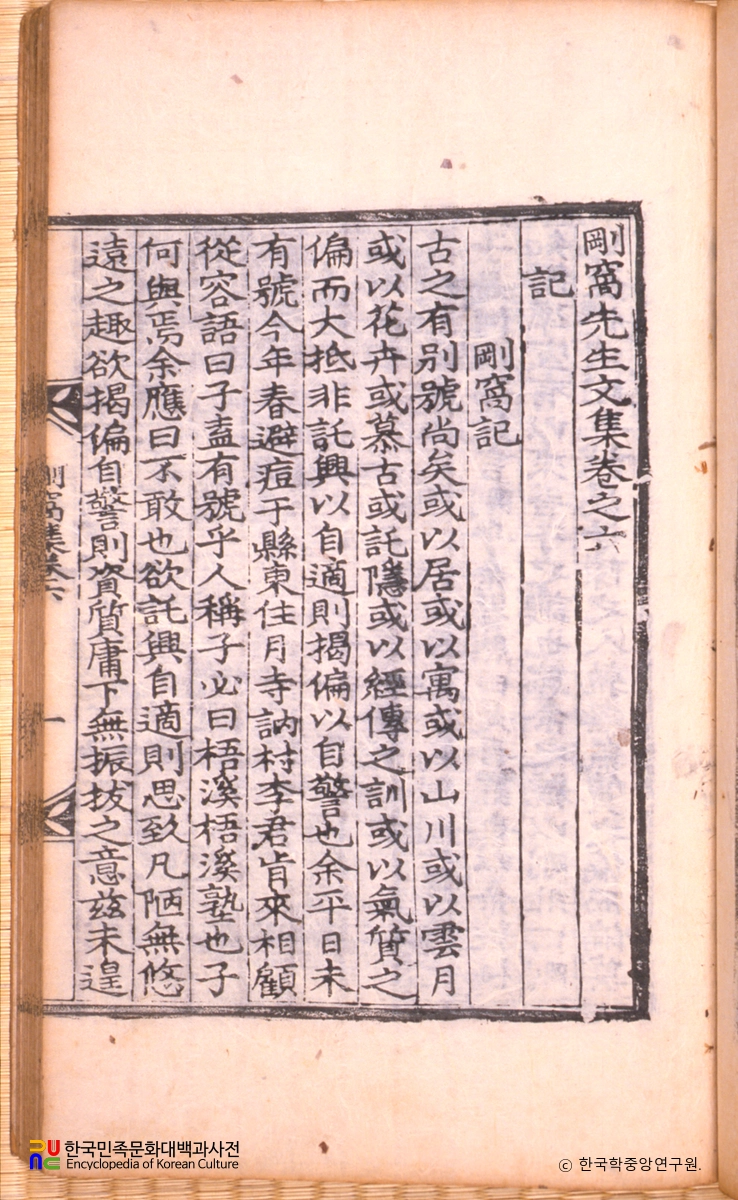 剛窩先生文集卷之六
記
剛窩記
古之有別號尚矣或以居或以寓或以山川或以雲月
或以花卉或慕古或託隱或以經傳之訓或以氣質之
偏而大抵非託興以自適則揭偏以自警也余平日未
有號今年春避痘于縣東住月寺訥村李君肯來相顧
從容語曰子盍有號乎人稱子必曰梧溪梧溪塾也子
何與焉余應曰不敢也欲託興自適則思致凡陋無悠
遠之趣欲揭偏自警則資質庸下無振拔之意玆未遑
剛窩集卷六
一
한국민족문화대백과사전
Encyclopedia of Korean Culture
© 한국학중앙연구원.